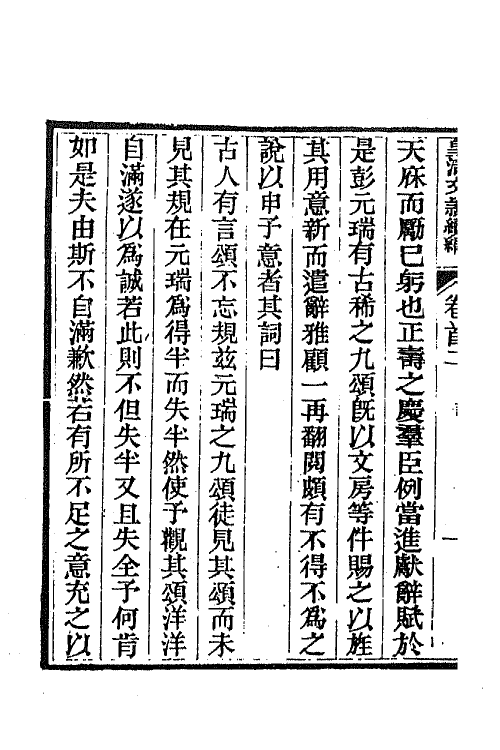 皇清文穎續編 卷首二
天庥而勵己躬也正壽之慶羣臣例當進獻辭賦於
是彭元瑞有古稀之九頌旣以文房等件賜之以旌
其用意新而遣辭雅顧一再翻閱頗有不得不爲之
說以申子意者其詞曰
古人有言頌不忘規兹元瑞之九頌徒見其頌而未
見其規在元瑞爲得半而失半然使予觀其頌洋洋
自滿遂以爲誠若此則不但失半又且失全予何肯
如是夫由斯不自滿歉然若有所不足之意充之以